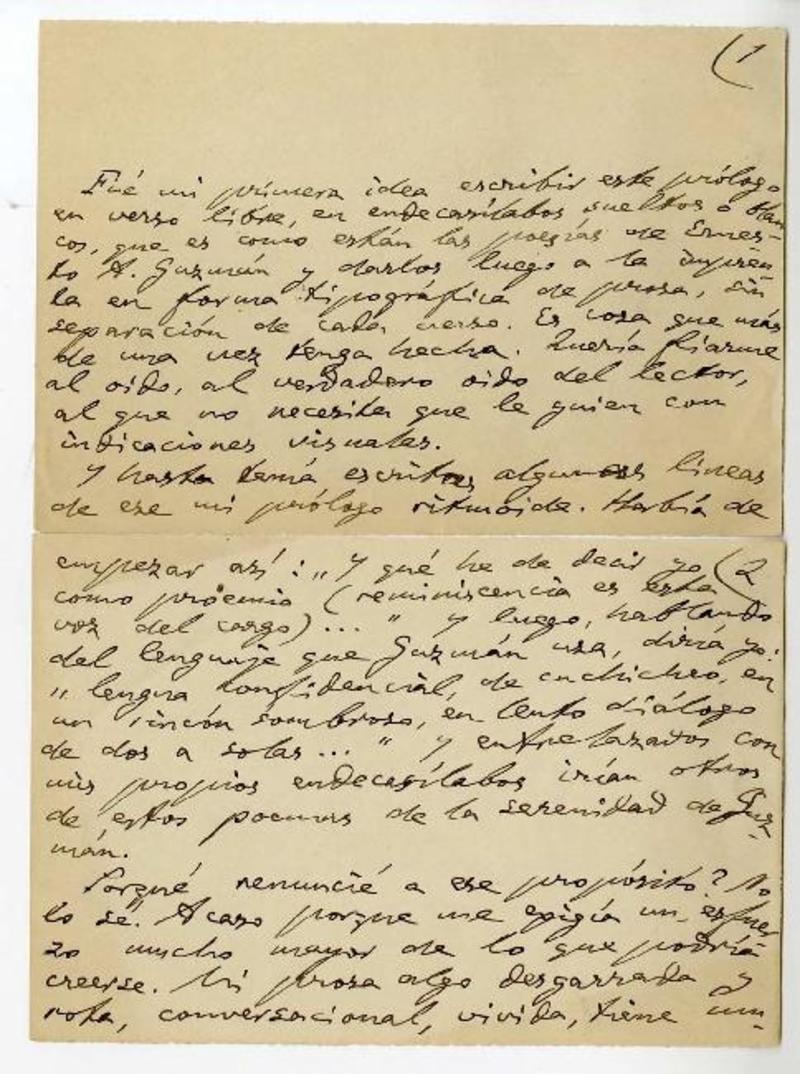 (1
Fué mi primera idea escribir este prólogo
en verso libre, en endecasílabos sueltos o blan
cos, que es como están las poesías de Ernes-
to A. Guzmán y darlos luego a la impren-
ta en forma tipográfica de prosa, sin
separación de cada verso. Es cosa que más
de una vez tengo hecha. Quería fiarme
al oido, al verdadero oido del lector,
al que no necesita que le guien con
indicaciones visuales.
Y hasta tenía escritas algunas lineas
de ese mi prólogo ritmoide. Había de
empezar así: „Y qué he de decir yo (2
como proemio (reminiscencia es esta
voz del cargo)... " Y luego, hablando
del lenguaje que Guzmán usa, diría yo:
„lengua confidencial, de cuchicheo, en
un rincón sombroso, en lento diálogo
de dos a solas... " Y entrelazados con
mis propios endecasílabos irían otros
de estos poemas de la serenidad de Guz-
mán.
Porqué renuncié a ese propósito? No
lo sé. Acaso porque me exigía un esfuer
zo mucho mayor de lo que podría
creerse. Mi prosa algo desgarrada y
rota, conversacional, vivida, tiene un-